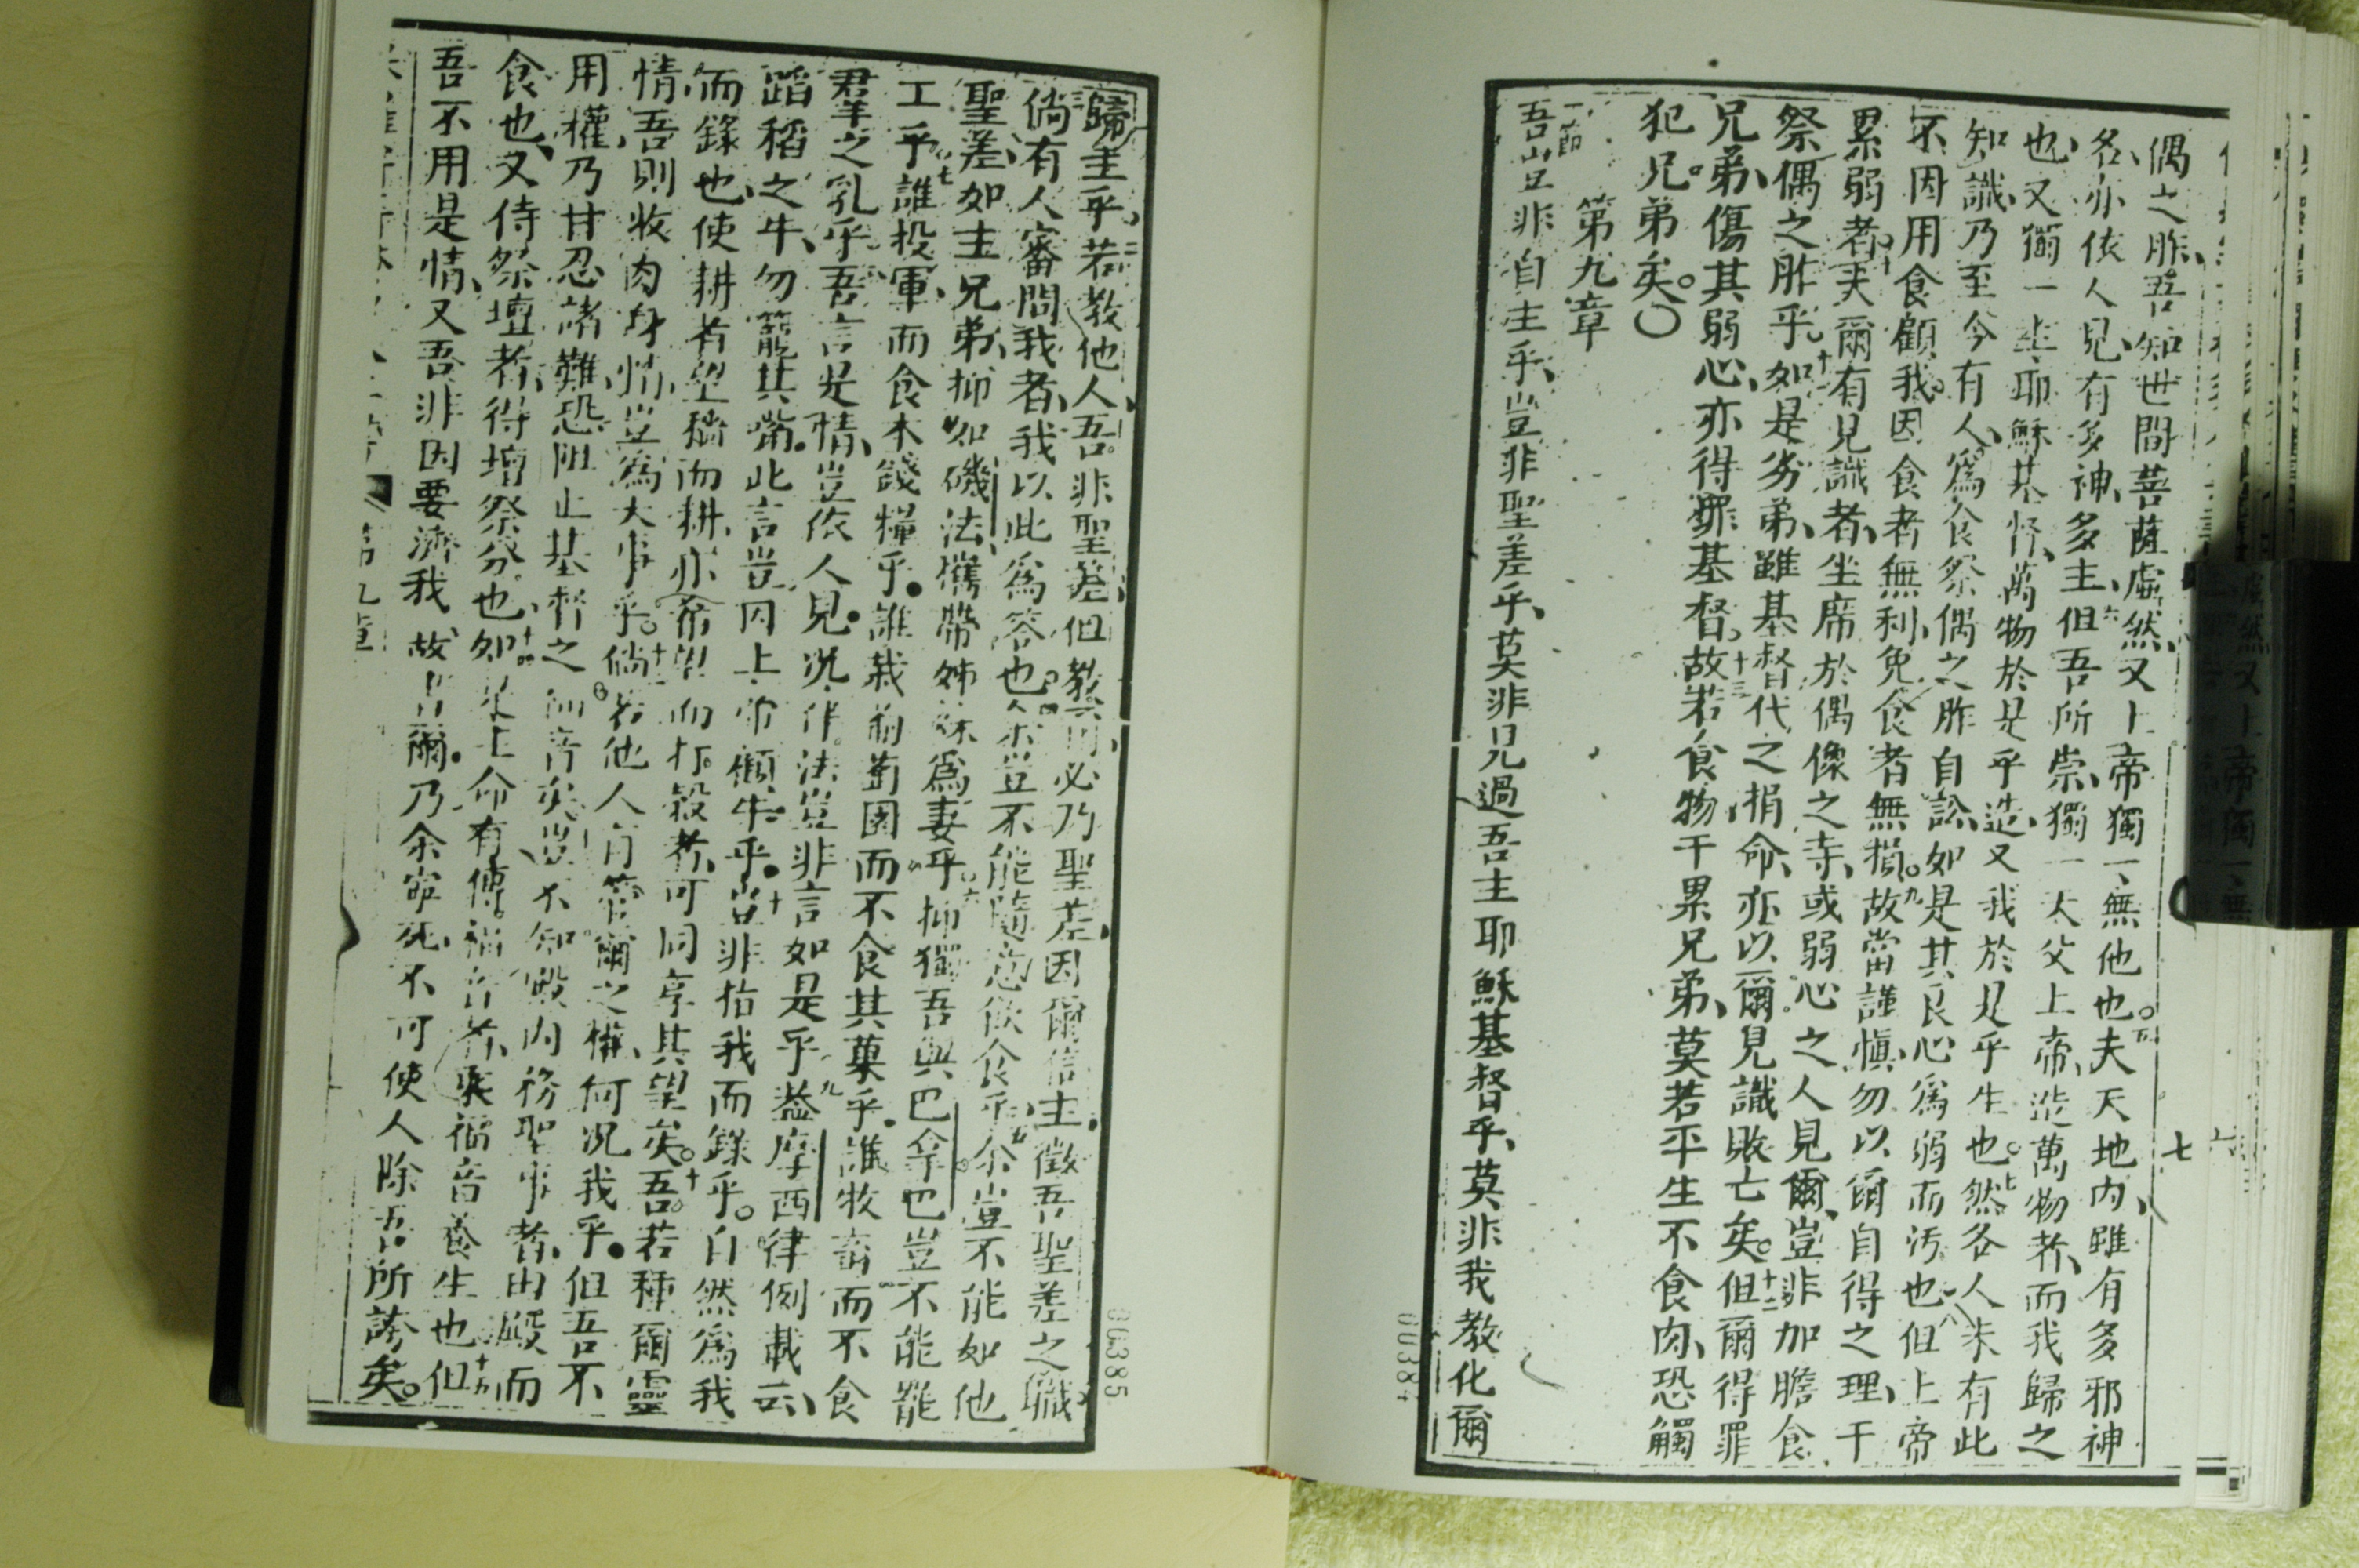 偶之胙。吾知世間菩薩虛然、又上帝獨一、無他也。五夫天地內、雖有多邪神
名、亦依人見、有多神、多主、六但吾所崇、獨一大父上帝、造萬物者、而我歸之
也、又獨一主、耶穌基督、萬物於是乎造、又我於是乎生也。七然各人未有此
知識、乃至今有人、爲食祭偶之胙自訟、如是其良心爲弱而污也、八但上帝
不因用食顧我。因食者無利、免食者無損。九故當謹愼、勿以爾自得之理、干
累弱者。十夫爾有見識者、坐席於偶像之寺、或弱心之人見爾、豈非加膽食
祭偶之胙乎。十一如是劣弟、雖基督代之捐命、亦以爾見識敗亡矣。十二但爾得罪
兄弟、傷其弱心、亦得罪基督。十三故若食物干累兄弟、莫若平生不食肉、恐觸
犯兄弟矣。〇
第九章
一節
吾豈非自主乎、豈非聖差乎、莫非見過吾主耶穌基督乎、莫非我教化爾
七
00384
歸主乎、二若教他人、吾非聖差、但教爾必乃聖差、因爾信主、徵吾聖差之職、
倘有人審問我者、我以此爲答也。四余豈不能隨意飲食乎、五余豈不能如他
聖差、如主兄弟、抑如磯法、攜帶姊妹爲妻乎。六抑獨吾與巴拿巴豈不能罷
工乎。七誰投軍、而食本錢糧乎。誰栽葡萄園而不食其菓乎。誰牧畜而不食
羣之乳乎。八吾言是情、豈依人見。況律法豈非言如是乎。九蓋摩西律例載云、
蹈稻之牛、勿籠其嘴。此言豈因上帝顧牛乎。十豈非指我而錄乎。自然爲我
而錄也、使耕者望穡而耕、亦希望而打穀者、可同享其望矣。十一吾若種爾靈
情、吾則收肉身情、豈爲大事乎。十二倘若他人有管爾之權、何況我乎。但吾不
用權、乃甘忍諸難、恐阻止基督之福音矣。豈不知殿內務聖事者、由殿而
食也、又侍祭壇者、得壇祭分也。十四如是主命有傳福音者、乘福音養生也。十五但
吾不用是情、又吾非因要濟我、故書爾。乃余寧死、不可使人除吾所誇矣。
第九章
00385